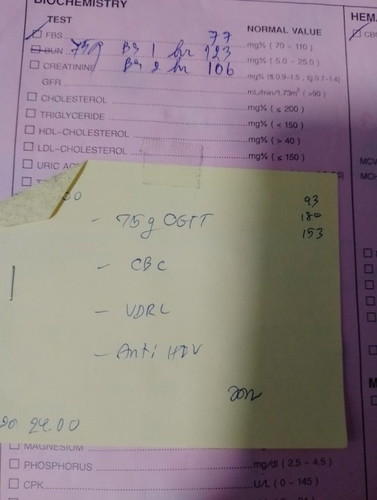 BIOCHEMISTRY
TEST NORMAL VALUE HEMA
FBS 77 mg% ( 70 - 110 )
BUN 75g BS 1 hr 123 mg% ( 5.0 - 25.0 )
CREATININE BS 2 hr 106 mg%
GFR mL/min/1.73m² (>90)
CHOLESTEROL mg% ( ≤ 200 )
TRIGLYCERIDE mg% ( < 150 )
HDL-CHOLESTEROL mg% ( > 40 )
LDL-CHOLESTEROL mg% ( ≤ 150 )
URIC AC MCV
MCH
93
- 75g OGTT 180
153
- CBC
- VDRL
- Anti HIV
24.00
MAGNESIUM
PHOSPHORUS mg/dl ( 2.5 - 4.5 )
CPK U/L ( 0 - 145 )